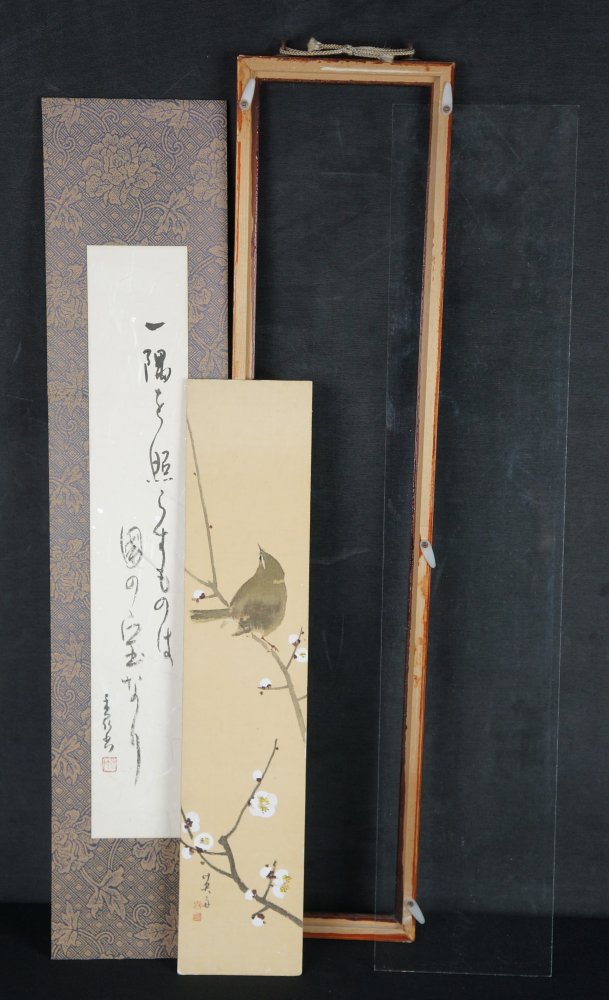 一隅を照らすものは
國の宝なり